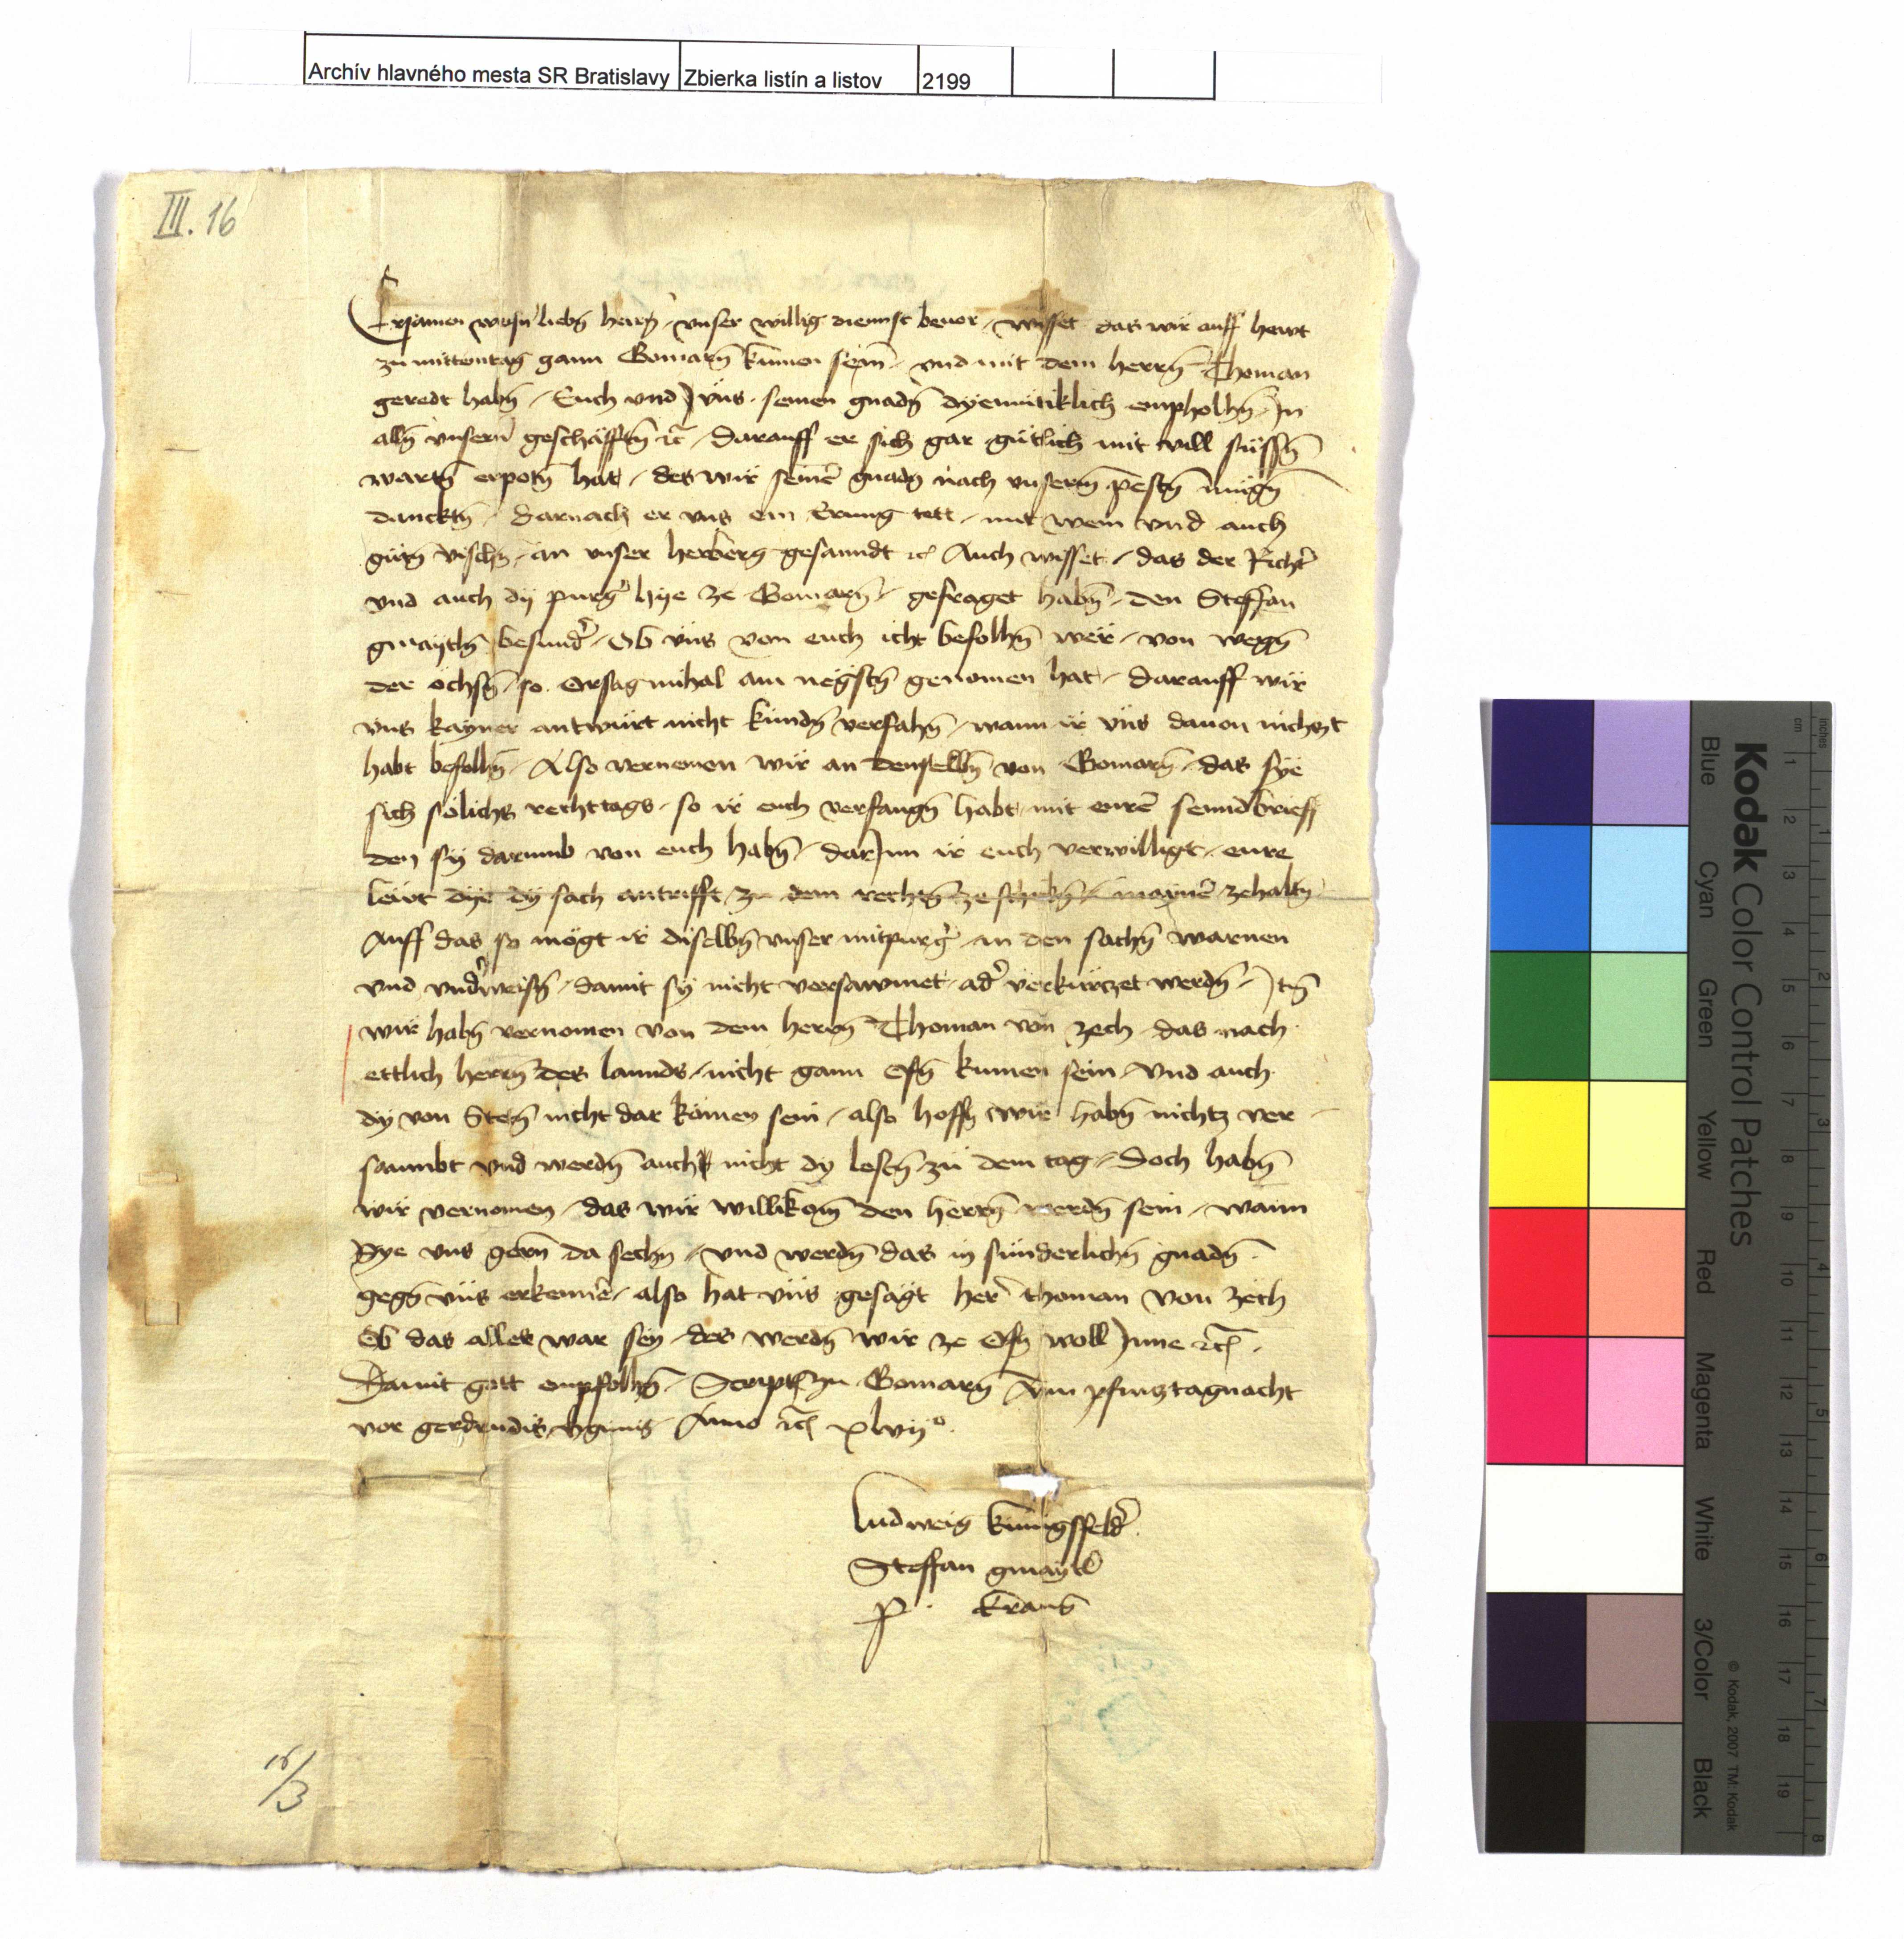 Archív hlavného mesta SR Bratislavy Zbierka listín a listov 2199
III. 16
Ersamen weysn liebn̄ herrn̄ / vnser willig diennst beuor / wisset das wir auff hewt
zu mittentag gann Gomarn̄ kumen sein / vnd mit dem herrn̄ Thoman
geredt habn̄ / Euch vnd vns seinen gnadn̄ dyemütiklich enpholhn̄ Jn
alln̄ vnsern̄ geschäfftn̄ etc / darauff er sich gar gütlich mit vill süssn̄
wartn̄ erpotn̄ hat / des wir seinē gnadn̄ nach vnserm pestn̄ mügn̄
dancktn̄ / darnach er vns ein Erung tett / mit wein vnd auch
gutn̄ vischn̄ / an vnser herberg gesanndt etc Auch wisset / das der Richter
vnd auch dÿ purger hye ze Gomarn̄ / gefraget habn̄ / den Steffan
gmaÿtln̄ besunder / Ob vns von euch icht befolhn̄ wër / von wegn̄
der ochsn̄ / so Orsag mihal am nëgstn̄ genomen hat / darauff wir
vns kayner antwürt nicht kundn̄ verfahn̄ / wann ir vns dauon nichczt
habt befolhn̄ / Also vernemen wir an denselbn̄ von Gomarn̄ / das sÿe
sich sölichs rechttags / so ir euch verfangn̄ habt / mit eurē senndbrieff
den sÿ darumb von euch habn̄ / darJnn ir euch verwilligt / eure
lëwt dÿe dÿ sach antrifft / ze dem rechtn̄ ze schikn̄ / zehaltn̄
Auff das so mögt ir diselbn̄ vnser mitpurger / an den sachn̄ warnen
vnd vnderweisn̄ / damit sÿ nicht versawmet ader verkurczet werdn̄ / Itm̄
wir habn̄ vernomen von dem herrn̄ Thoman von zech das nach
ettlich herrn̄ des lannds / nicht gann Ofn̄ kumen sein / Vnd auch
dÿ von nicht dar kömen sein / also hoffn̄ wir habn̄ nichtz ver
sawmbt vnd werdn̄ auch nicht dy lestn̄ zu dem tag / Doch habn̄
wir vernomen / das wir willikom̄ den herrn̄ werdn̄ sein / wann
Sye vns gern̄ da sechn̄ / vnd werdn̄ das in sünderlichn̄ gnadn̄
gegn̄ vns erkennē / also hat vns gesägt her thoman von zëch
Ob das alles war seÿ / des werdn̄ wir ze Ofn̄ woll Jnne etc
Damit gott enpfolhn̄ / Script Jn Gomarn̄ Am pfincztagnacht
vor gerdrudis vginis Anno etc xlvijº
Ludweig kunigsfelder
Steffan gmaÿtl
P. Kraus
16/3
Kodak Color Control Patches
Blue Cyan Green Yellow Red Magenta White 3/Color Black
© Kodak, 2007 TM: Kodak
inches 1 2 3 4 5 6 7 8
cm 1 2 3 4 5 6 7 8 9 10 11 12 13 14 15 16 17 18 19